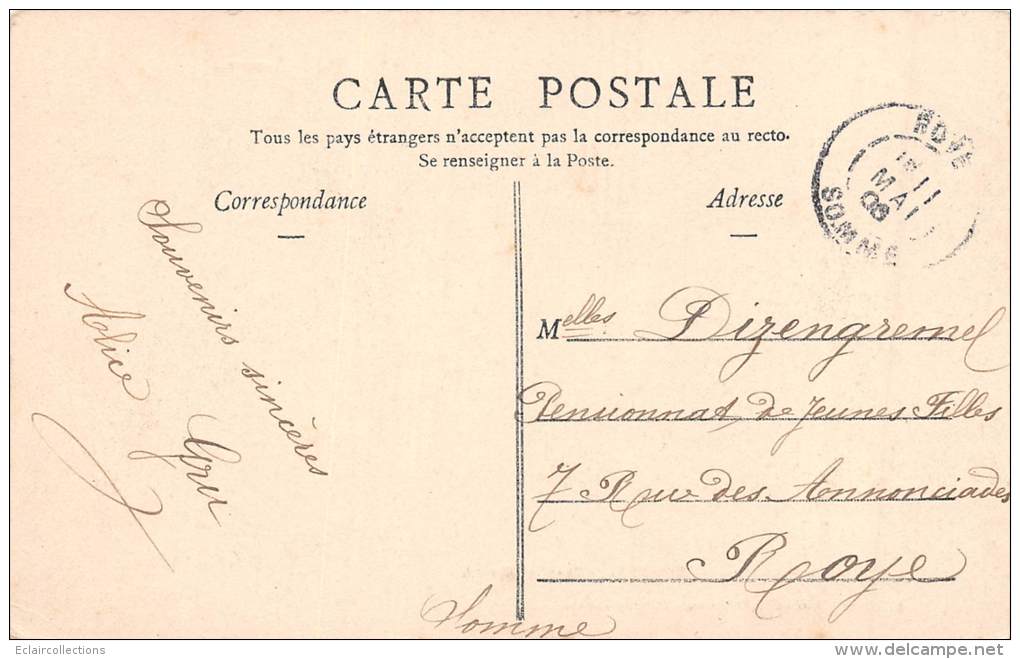 CARTE POSTALE
Tous les pays étrangers n'acceptent pas la correspondance au recto.
Se renseigner à la Poste.
Correspondance
Adresse
ROYE
11
MAI
08
SOMME
Souvenirs sincères
Alice Gru
Melles Dizengremel
Pensionnat de Jeunes Filles
7 Rue des Annonciades
Roye
Somme
Eclaircollections
delcampe.net